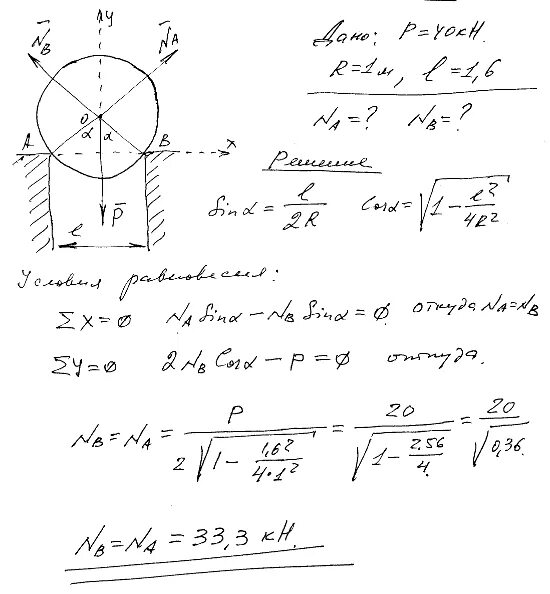 Дано: P=40кН.
R=1м, l=1,6
N_A=? N_B=?
Решение
Sinα = l/2R Cosα = √(1 - l²/4R²)
y
N̄_B N̄_A
O
α α
A B x
P̄
l
Условия равновесия:
ΣX=0 N_A Sinα - N_B Sinα = 0 откуда N_A=N_B
ΣY=0 2N_B Cosα - P = 0 откуда.
N_B = N_A = P/(2√(1 - 1,6²/(4·1²))) = 20/√(1 - 2,56/4) = 20/√0,36
N_B = N_A = 33,3 кН.